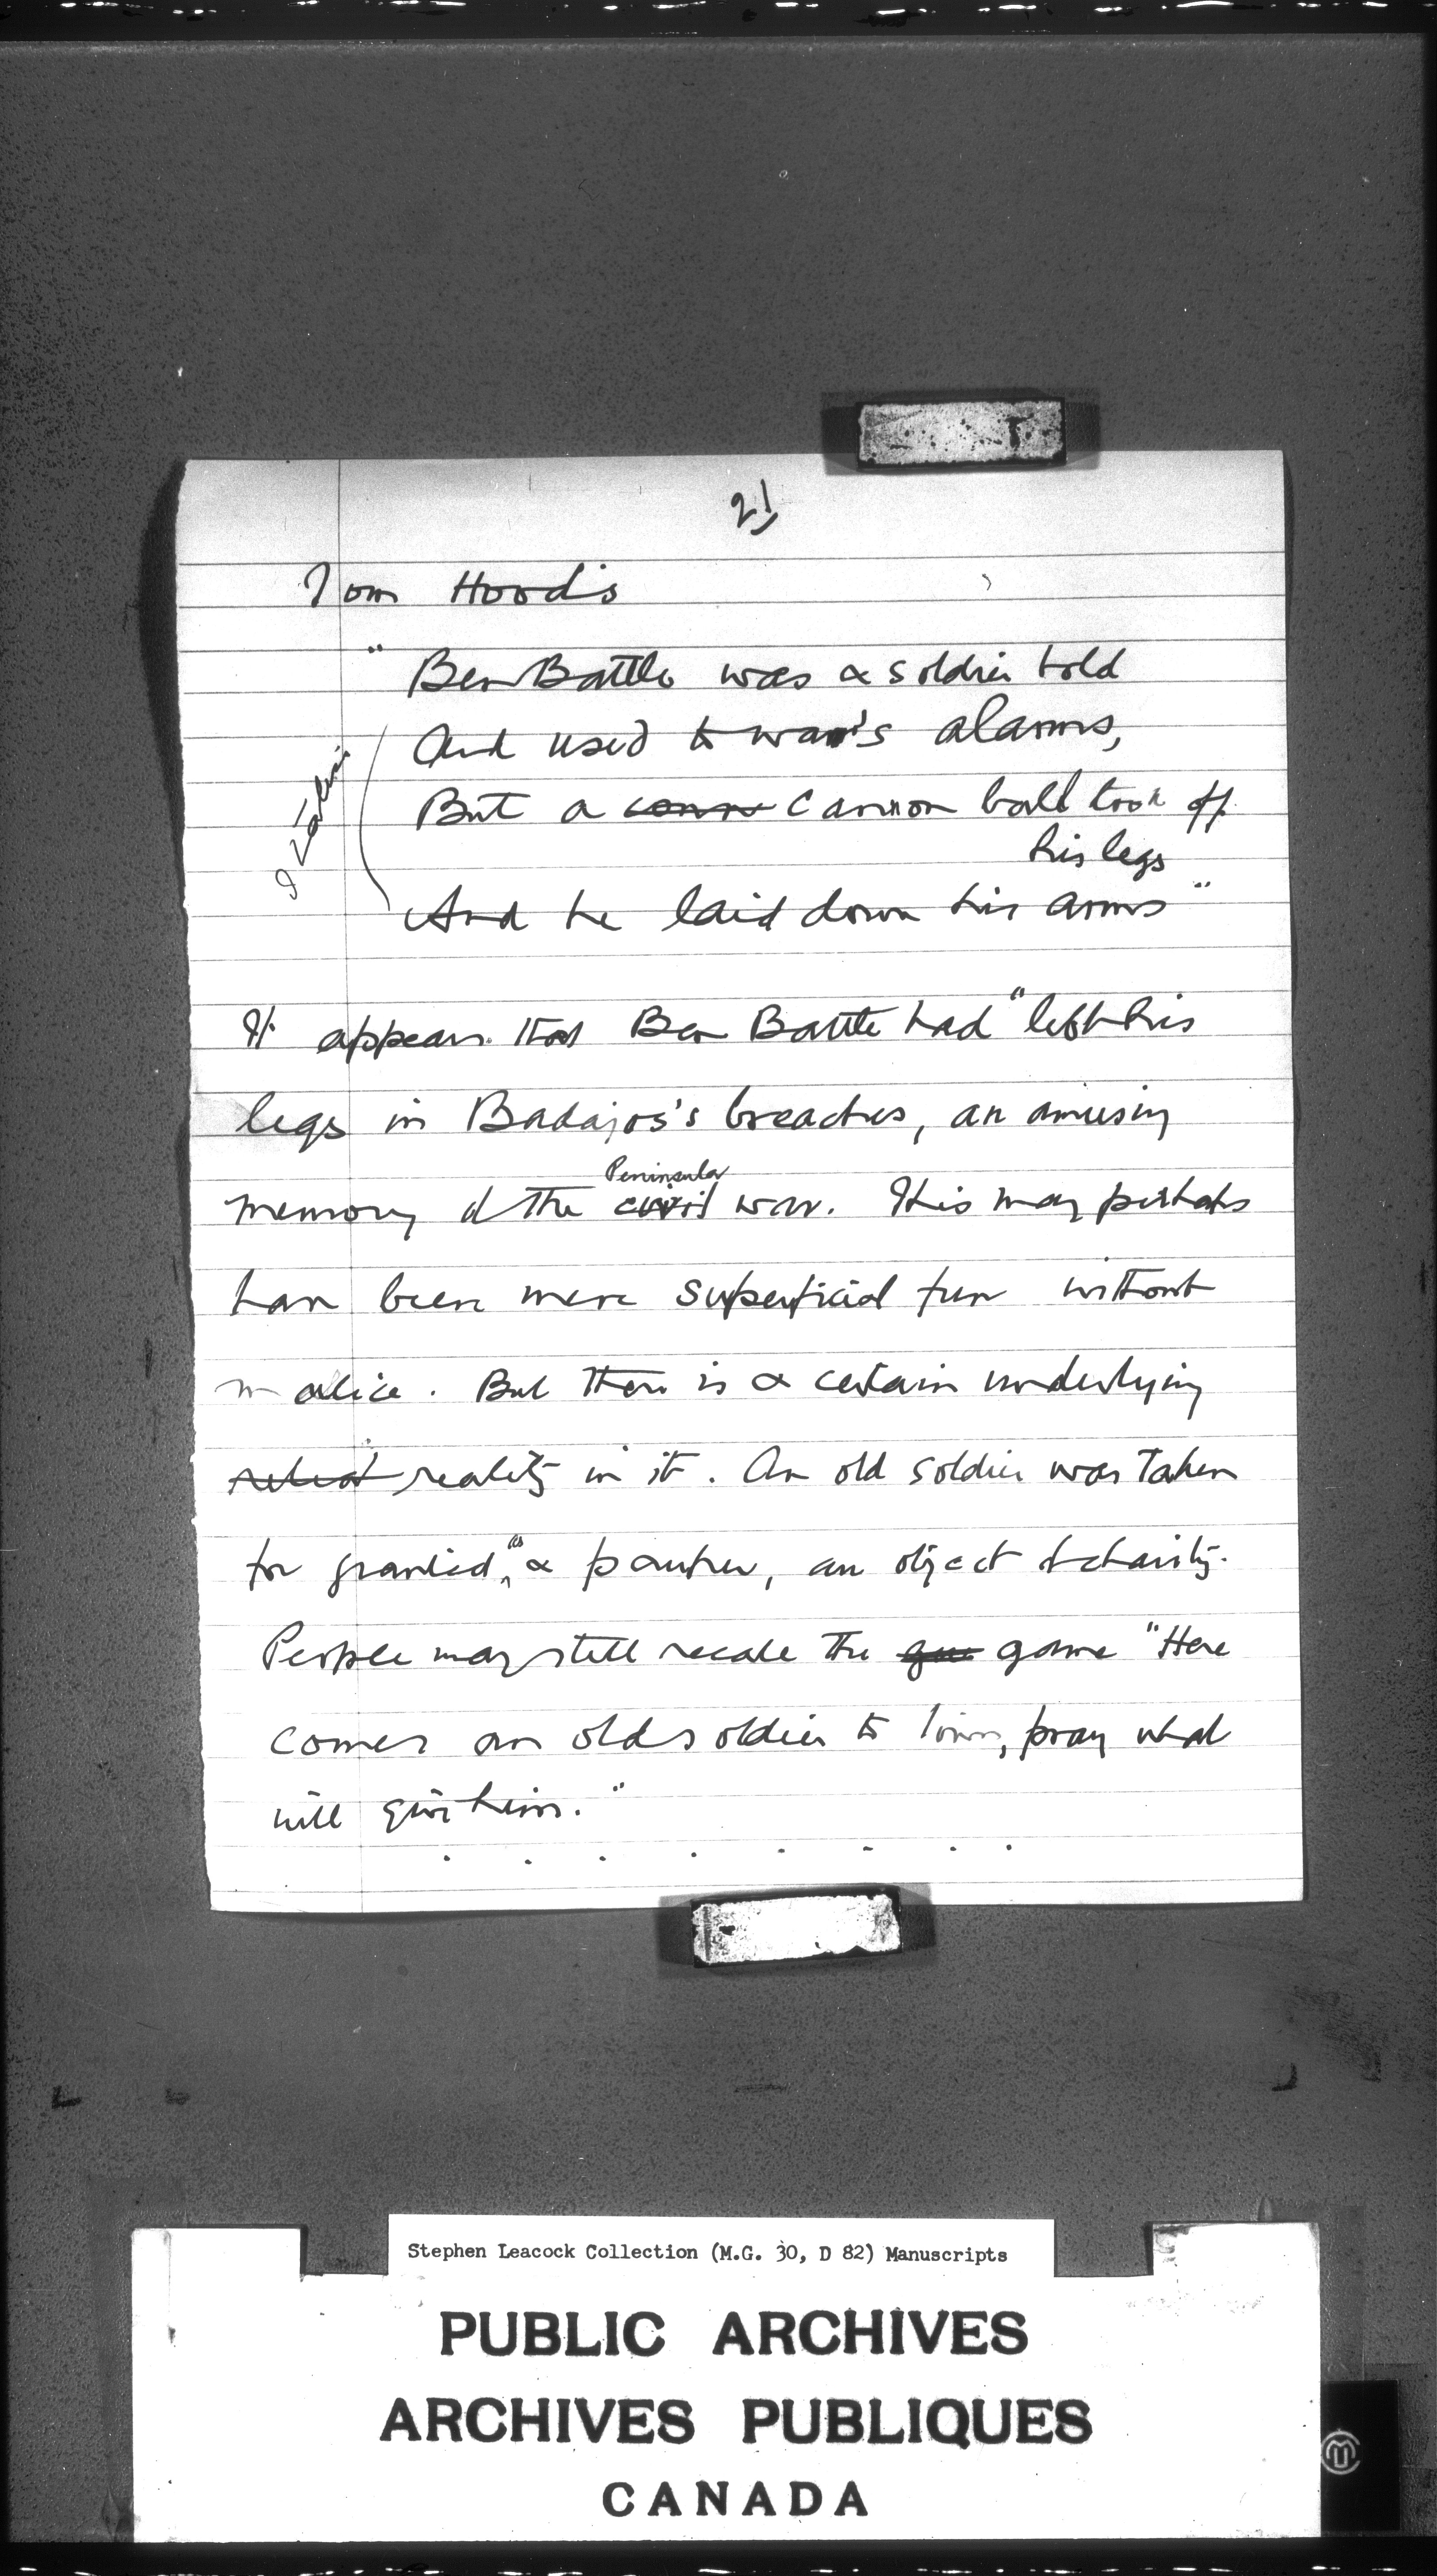 21
Tom Hood's
" Ben Battle was a soldier bold
And used to war's alarms,
But a cannon ball took off
his legs
And he laid down his arms "
Italics
It appears that Ben Battle had "left his
legs in Badajos's breaches, an amusing
Peninsula
memory of the civil war. This may perhaps
have been mere superficial fun without
malice. But there is a certain underlying
reality in it. An old soldier was taken
as
for granted, a pauper, an object of charity.
People may still recall the game "Here
comes an old soldier to town, pray what
will give him."
. . . . . . . .
Stephen Leacock Collection (M.G. 30, D 82) Manuscripts
PUBLIC ARCHIVES
ARCHIVES PUBLIQUES
CANADA